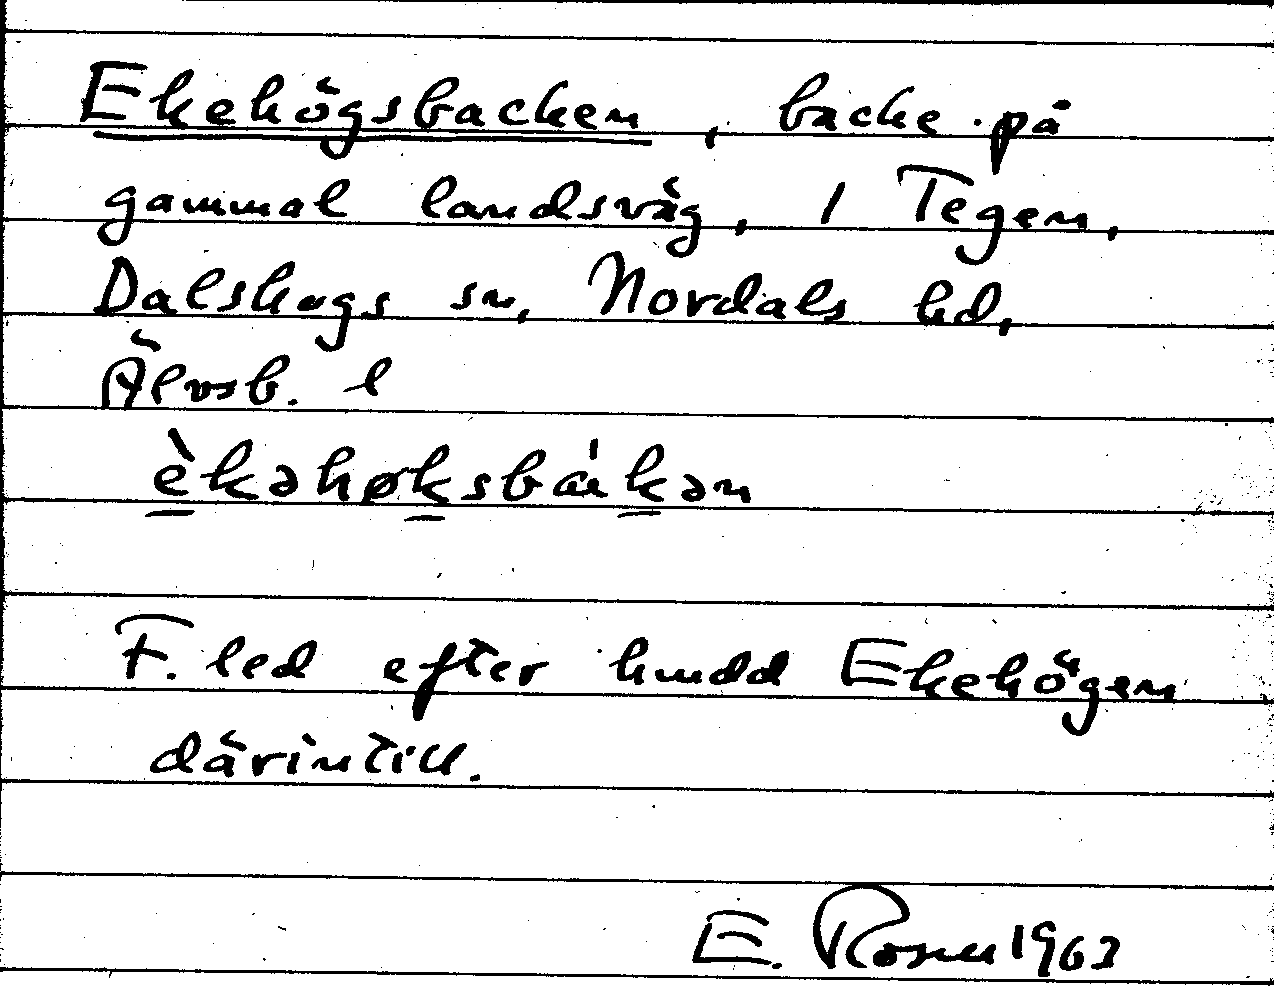 Ekehögsbacken, backe på
gammal landsväg, 1 Tegen,
Dalskogs sn, Nordals hd,
Älvsb. l
èkəhøksbákən
F. led efter hmdd Ekehögen
därintill.
E. 1963